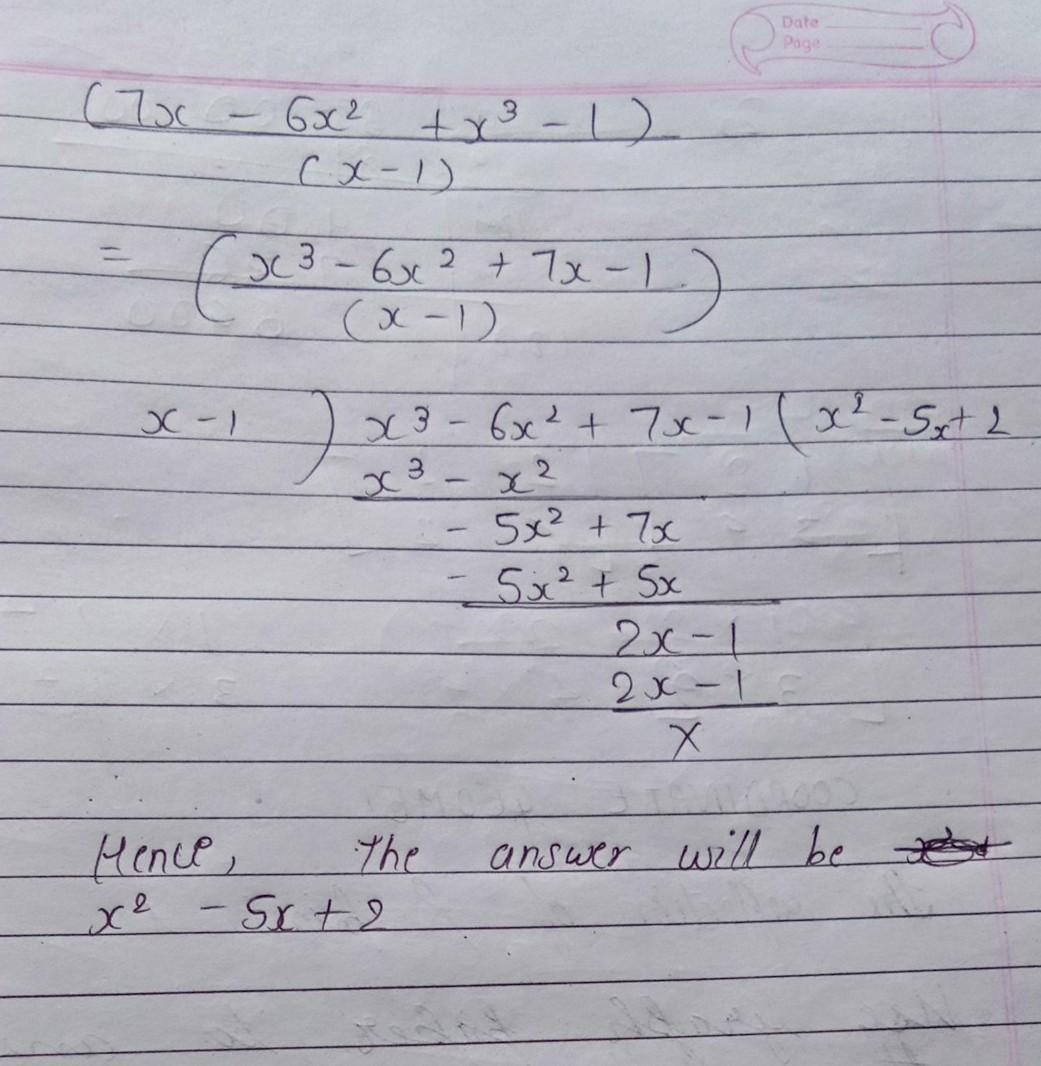 Date
Page
(7x - 6x² + x³ - 1)
(x - 1)
= (x³ - 6x² + 7x - 1)
(x - 1)
x - 1 ) x³ - 6x² + 7x - 1 ( x² - 5x + 2
x³ - x²
- 5x² + 7x
- 5x² + 5x
2x - 1
2x - 1
x
Hence, the answer will be
x² - 5x + 2